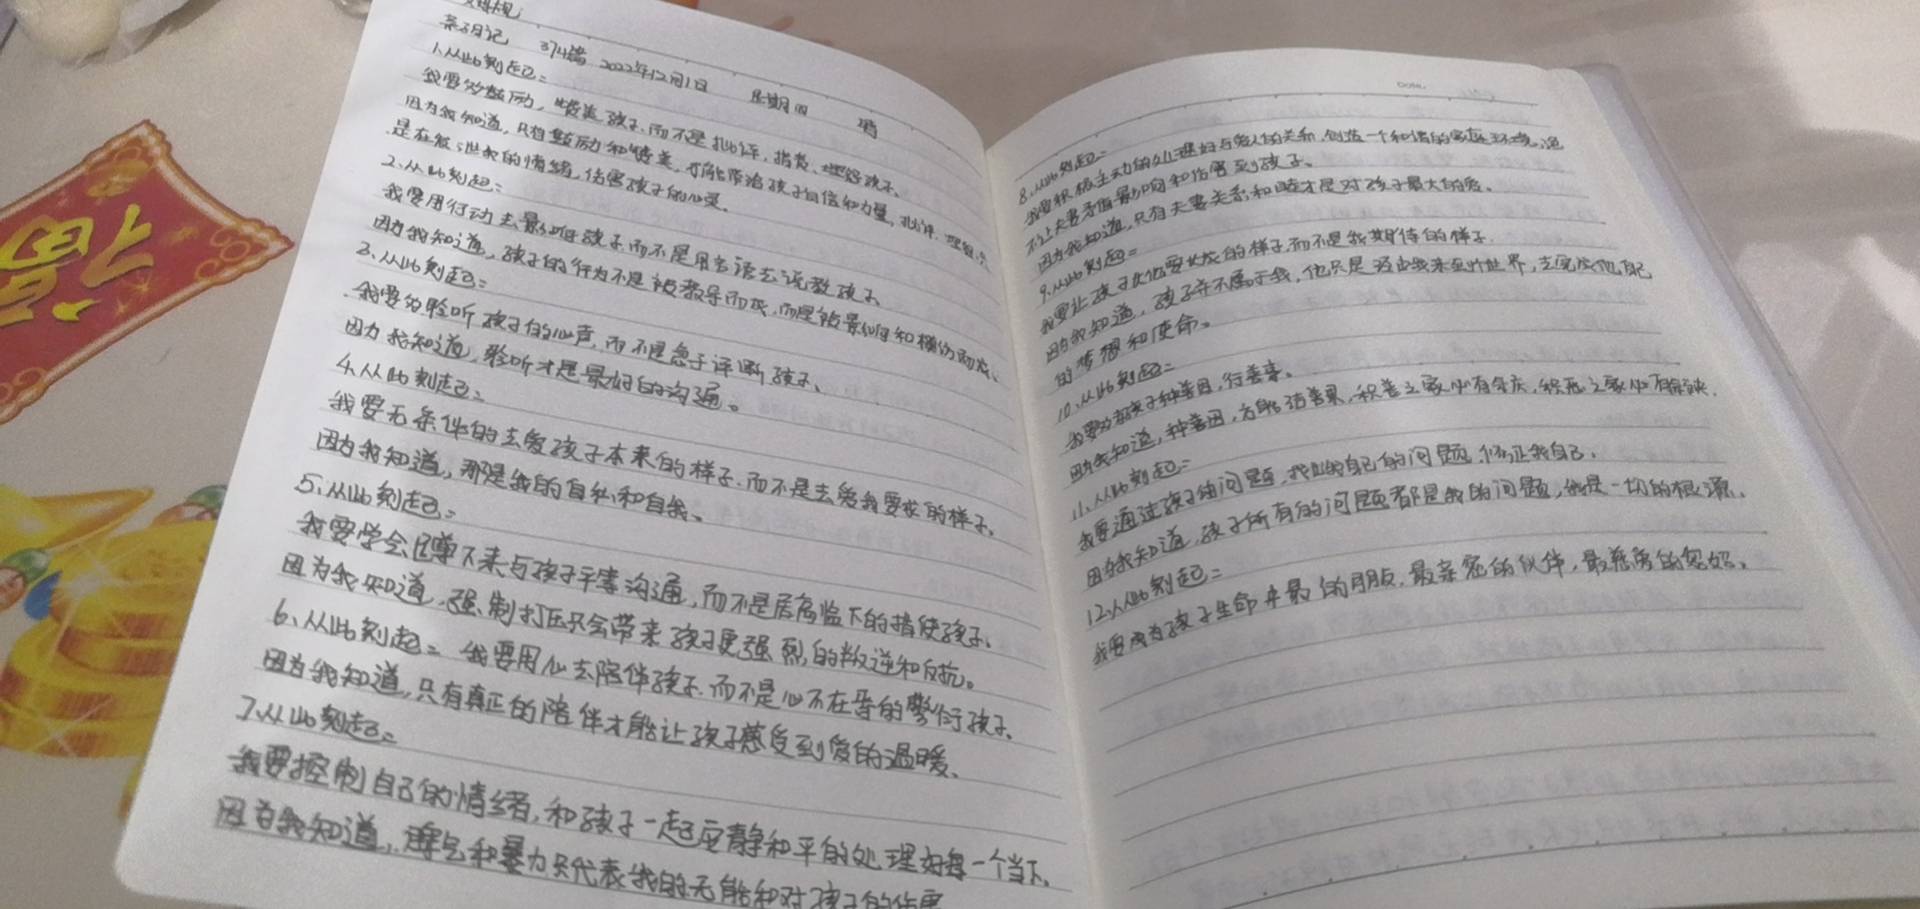 亲子日记 374篇 2022年12月1日 星期四 晴
1、从此刻起:
我要多鼓励,赞美孩子,而不是批评,指责、埋怨孩子、
因为我知道,只有鼓励和赞美,才能带给孩子自信和力量,批评、埋怨
是在发泄我的情绪,伤害孩子的心灵、
2、从此刻起:
我要用行动去影响孩子,而不是用言语去说教孩子、
因为我知道,孩子的行为不是被教导而成,而是被影响和模仿而成、
3、从此刻起:
我要多聆听孩子的心声,而不是急于评断孩子、
因为我知道,聆听才是最好的沟通。
4、从此刻起:
我要无条件的去爱孩子本来的样子,而不是去爱我要求的样子、
因为我知道,那是我的自私和自我、
5、从此刻起:
我要学会蹲下来与孩子平等沟通,而不是居高临下的指使孩子、
因为我知道,强制打压只会带来孩子更强烈的叛逆和反抗。
6、从此刻起:我要用心去陪伴孩子,而不是心不在焉的敷衍孩子、
因为我知道,只有真正的陪伴才能让孩子感受到爱的温暖、
7、从此刻起:
我要控制自己的情绪,和孩子一起宁静和平的处理好每一个当下、
因为我知道,脾气和暴力只代表我的无能和对孩子的伤害
DATE
8、从此刻起:
我要积极主动的处理好与爱人的关系,创造一个和谐的家庭环境,绝
不让夫妻矛盾影响和伤害到孩子。
因为我知道,只有夫妻关系和睦才是对孩子最大的爱。
9、从此刻起:
我要让孩子成他要成的样子,而不是我期待的样子、
因为我知道,孩子并不属于我,他只是经由我来到世界,去完成他自己
的梦想和使命。
10、从此刻起:
我要为孩子种善因,行善事。
因为我知道,种善因,方能结善果,积善之家必有余庆,积恶之家必有余殃、
11、从此刻起:
我要通过孩子的问题,找出我自己的问题,修正我自己、
因为我知道,孩子所有的问题都是我的问题,我是一切的根源、
12、从此刻起:
我要成为孩子生命中最 的朋友,最亲密的伙伴,最慈爱的妈妈、
福